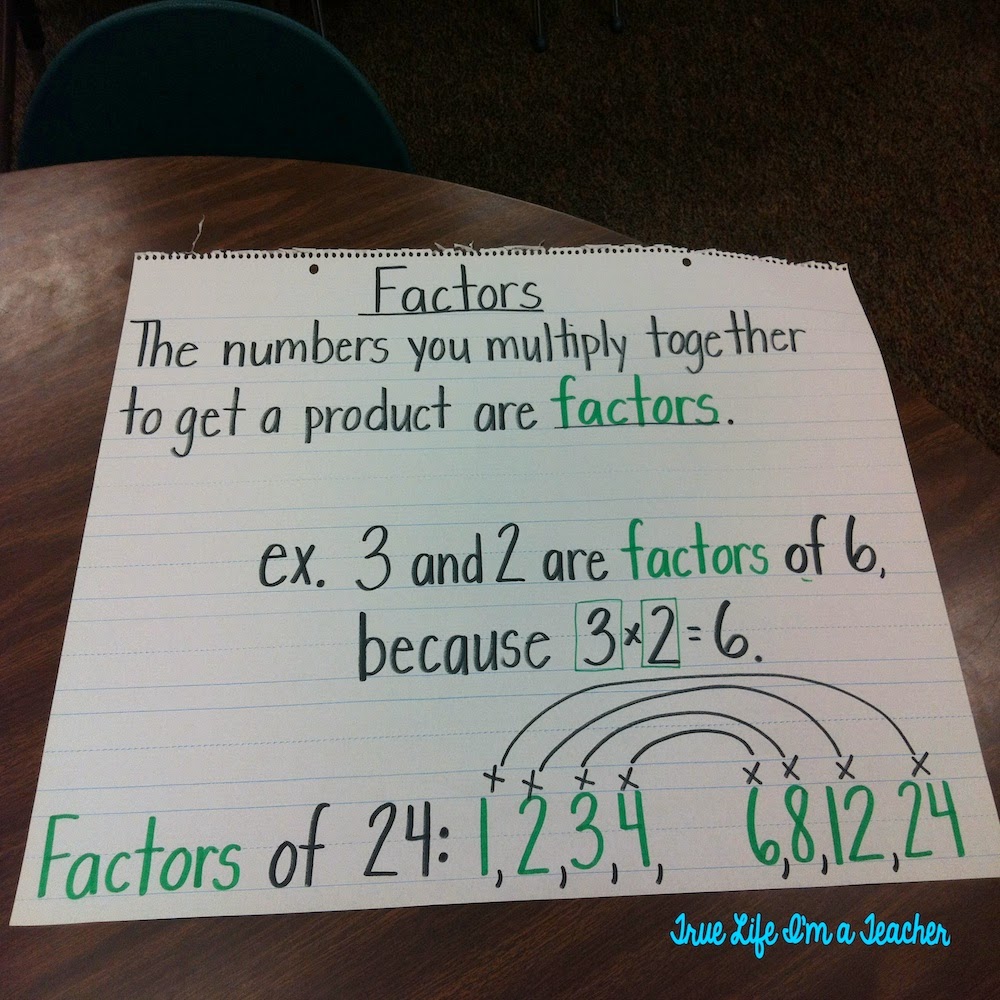 Factors
The numbers you multiply together
to get a product are factors.
ex. 3 and 2 are factors of 6,
because 3 × 2 = 6.
Factors of 24: 1, 2, 3, 4, 6, 8, 12, 24
True Life I'm a Teacher